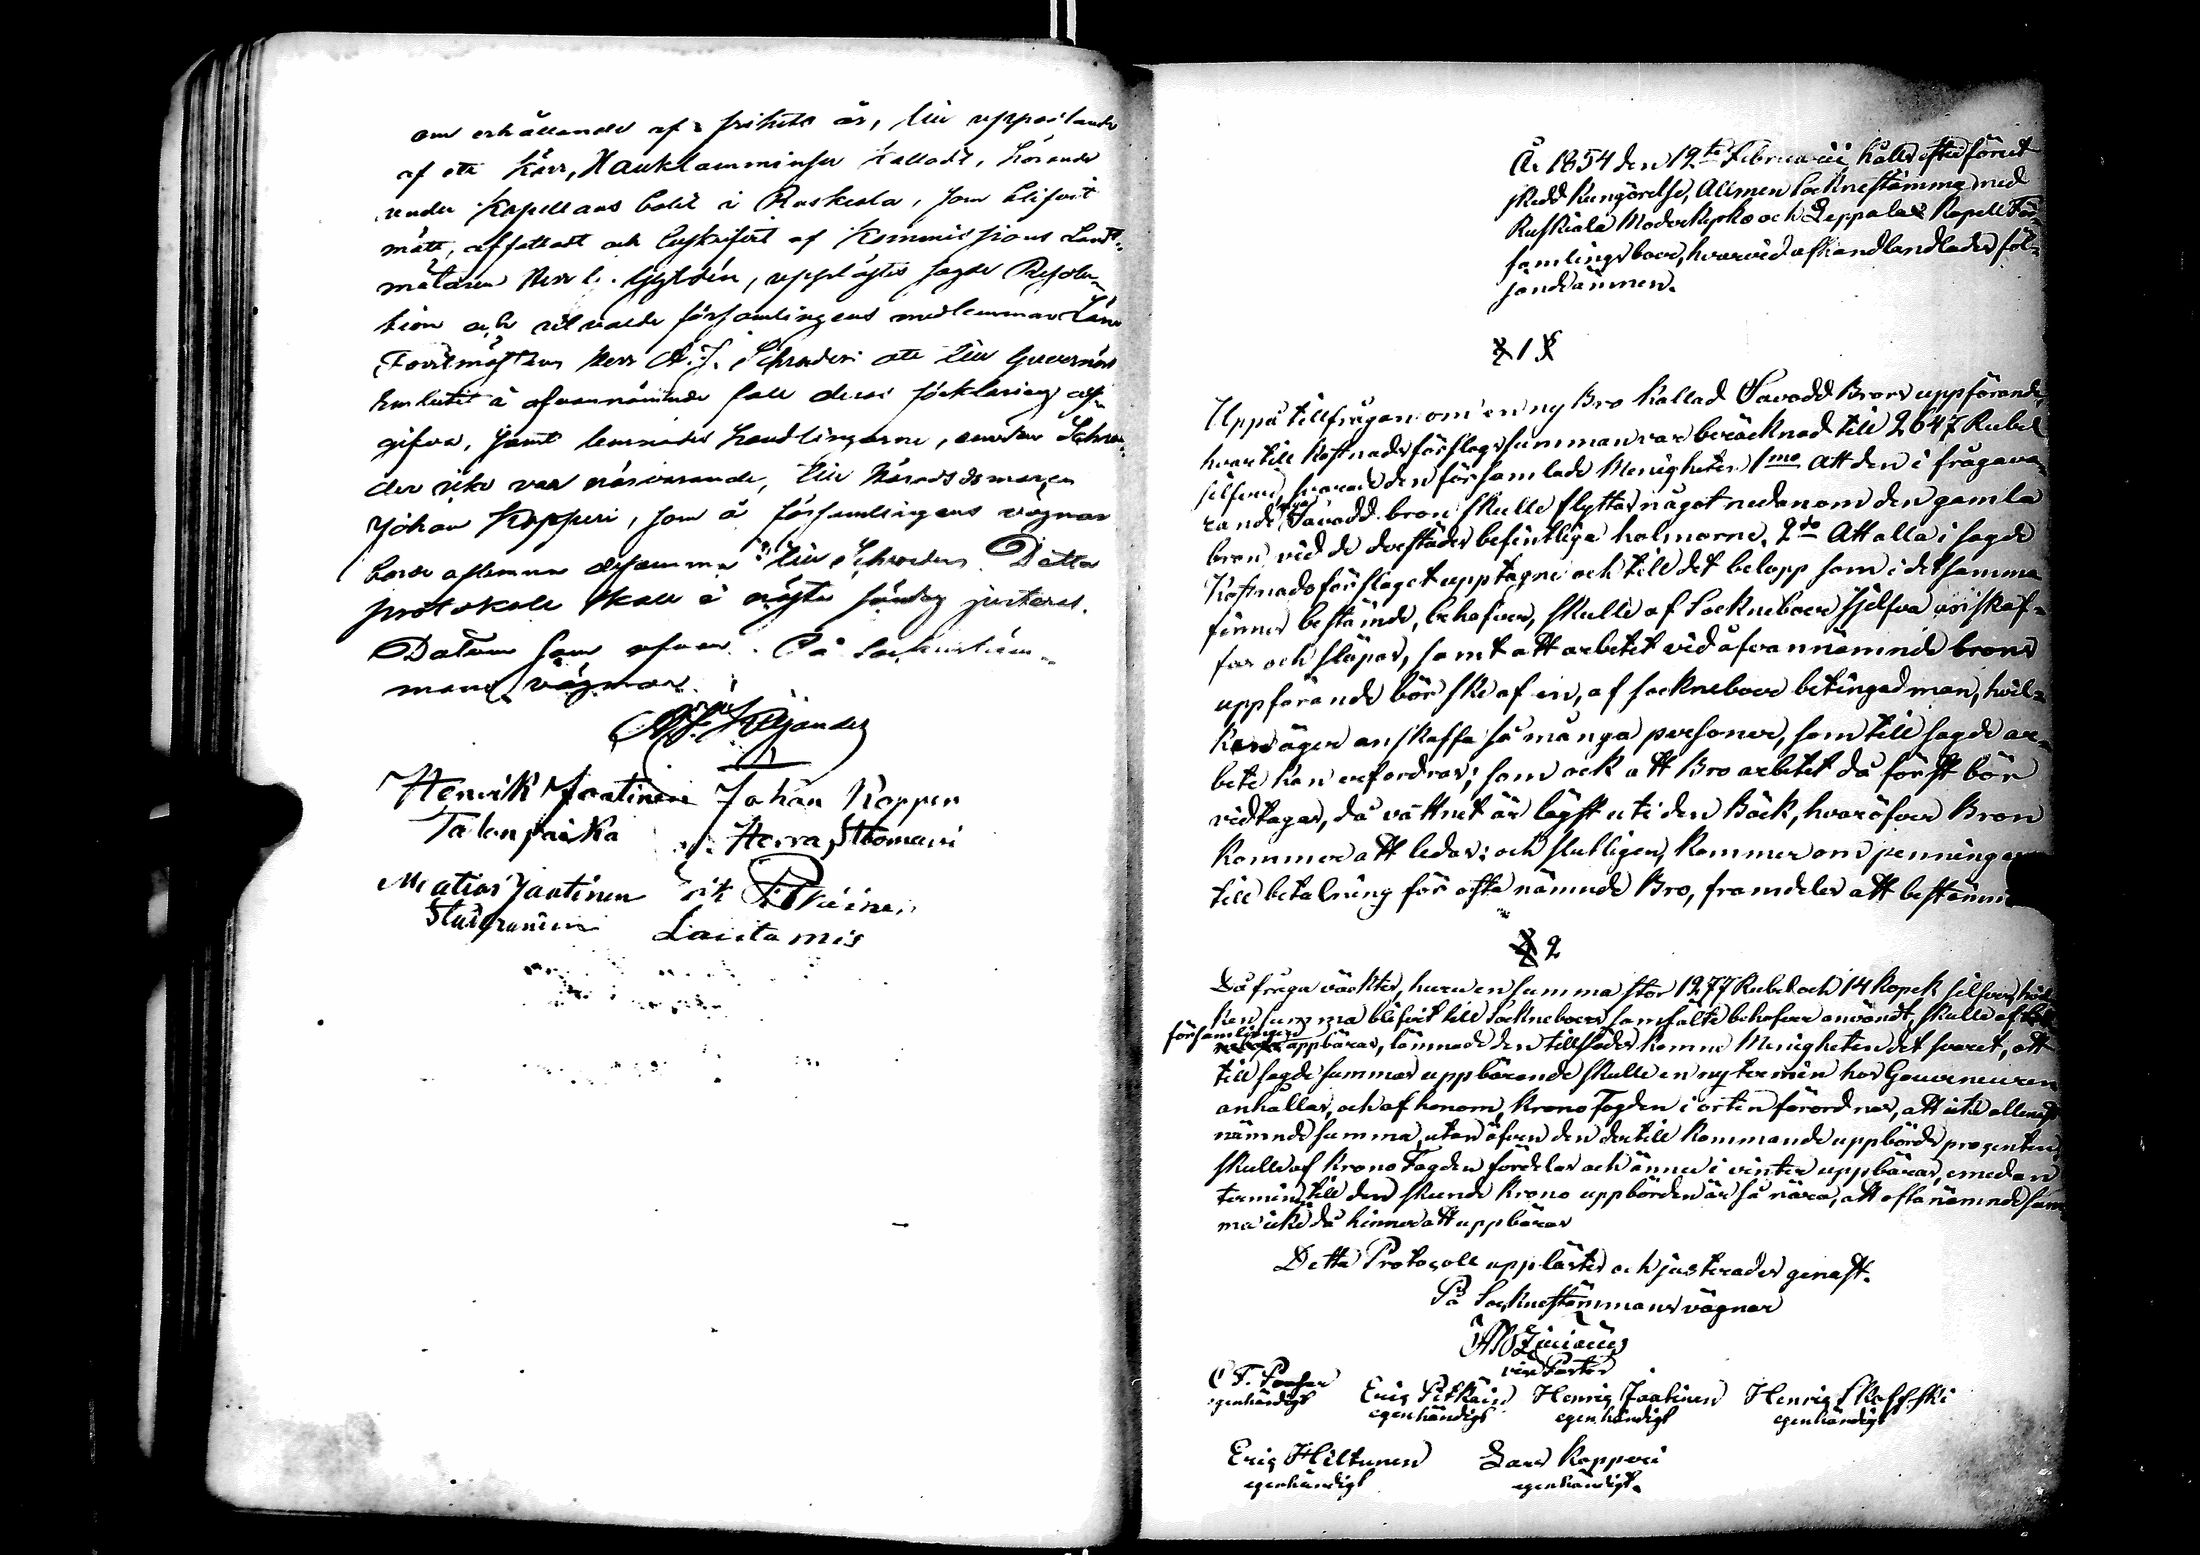 om erhållande af frihets år, till uppodlande
af ett kärr, Hauklamminsu kalladt, hörande
under Kapellans bolet i Ruskeala, som blifvit
mätt, affattadt och beskrifvit af Kommissions Landt-
mätaren Herr Gyldén, upplästes sagde Resolu-
tion och utvalde församlingens medlemmar Läns
Forstmästaren Herr A. J. Schrader att till Guvernörs
Embetet å ofvannämnde fall deras förklaring af-
gifva, samt lemnades handlingarne, emedan Schra-
der icke var närvarande, till Häradsdomaren
Johan Kopperi, som å församlingens vägnar
borde aflemna desamma till Schrader. Detta
protokoll skall i nästa söndag justeras.
Datum som ofvan. På Sockenstäm-
mans vägnar
Henrik Jaatinen Johan Kopperi
Talonpoika Herra Stuomari
Matias Jaatinen Erik Pitkäinen
Lautamies
År 1854 den 12te Februarii hölls efter förut
skedd kungörelse, Allmen Socknestämma med
Ruskiala Moderkyrko och Leppälax Kapell För-
samlings boer, hvarvid afhandlandlades föl-
jande ämnen.
§ 1 §
Uppå tillfrågan om en ny Bro kallad Savodd Brors uppförande,
hvartill kostnadsförslags summan var beräcknad till 2647 Rubel
silfver, svarade den församlade Menigheten 1mo Att den i frågava-
rande Savodd bron skulle flyttas något nedanom den gamla
bron vid de derstädes befintliga holmarne, 2do Att alla i sagde
Kostnadsförslaget upptagne och till det belopp som i detsamma
finnes bestämde, behofver, skulle af Sockneboer sjelfva anskaf-
fas och släpas, samt att arbetet vid åfvannämnde brons
uppförande bör ske af en, af sockneboer betingad man, hvil-
ken äger anskaffa så många personer, som till sagde ar-
bete kan erfordras; som ock att Bro arbetet då först bör
vidtagas, då vattnet är lägst uti den Bäck, hvaröfver Bron
kommer att ledas: och slutligen, kommer om penningar
till betalning för ofta nämnde Bro, framdeles att bestämm
§ 2
Då fråga väcktes, huru en summa stor 1277 Rubel och 14 Kopek silfver, hvil-
ken summa blifvit till Sockneboers samfälte behofver användt, skulle af
församlingen uppbäras, lämnade den tillstädes komne Menigheten det svaret, att
till sagde summas uppbärande skulle en ny termin hos Gouverneuren
anhållas, och af honom, Krono Fogden i orten förordnas, att icke allenast
nämnde summa, utan äfven den dertill kommande uppbörds procenten
skulle af Krono Fogden fördelas och ännu i vinter uppbäras, emedan
termin till den skunde Krono uppbörden är så nära, att oftanämnde sum-
ma icke då hinner att uppbäras
Detta Protocoll upplästes och justerades genast.
På Socknestämmans vägnar
vice Pastor
egenhändigt Eric Pitkäin Henric Jaatinen Henric Skoffski
egenhändigt egenhändigt egenhändigt
Eric Hiltunen Lars Kopperi
egenhändigt egenhändigt.